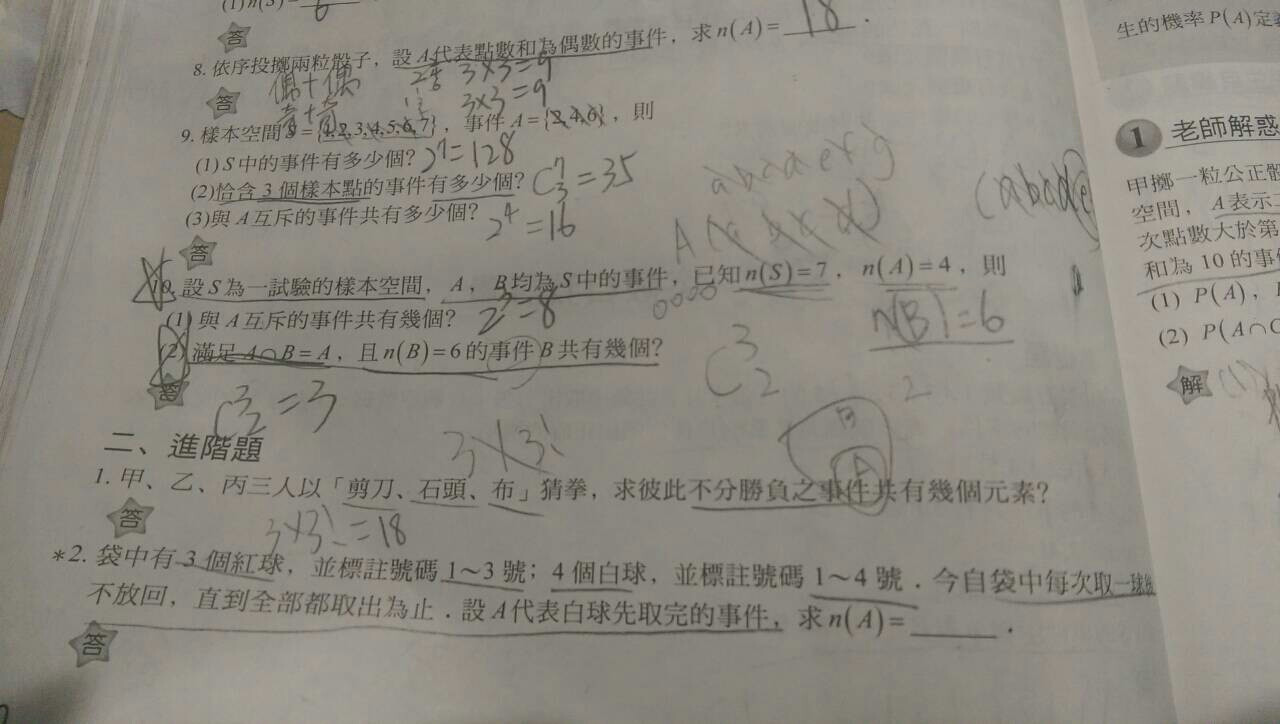 (1)n(S)= 6
答
8. 依序投擲兩粒骰子，設A代表點數和為偶數的事件，求n(A)= 18 .
答 偶+偶 3×3=9
奇+奇 3×3=9
9. 樣本空間S={1,2,3,4,5,6,7}，事件A={2,4,6}，則
(1)S中的事件有多少個? 2^7=128
(2)恰含3個樣本點的事件有多少個? C^7_3=35
(3)與A互斥的事件共有多少個? 2^4=16
答
10. 設S為一試驗的樣本空間，A，B均為S中的事件，已知n(S)=7，n(A)=4，則
(1) 與A互斥的事件共有幾個? 2^3=8
n(B)=6
(2) 滿足A∩B=A，且n(B)=6的事件B共有幾個? C^3_2
答 C^3_2=3
B
A
二、進階題
3×3!
1. 甲、乙、丙三人以「剪刀、石頭、布」猜拳，求彼此不分勝負之事件共有幾個元素?
答 3×3!=18
*2. 袋中有3個紅球，並標註號碼1～3號；4個白球，並標註號碼1～4號．今自袋中每次取一球後
不放回，直到全部都取出為止．設A代表白球先取完的事件，求n(A)=______．
答
生的機率P(A)定
1 老師解惑
甲擲一粒公正骰
空間，A表示
次點數大於第
和為10的事件
(1) P(A)，
(2) P(A∩
解